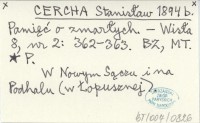 CERCHA Stanisław 1894 b.
Pamięć o zmarłych. — Wisła
8, nr 2: 362-363. BZ, MT.
* P.
W Nowym Sączu i na
Podhalu (w Łopusznej).
67/004/0826